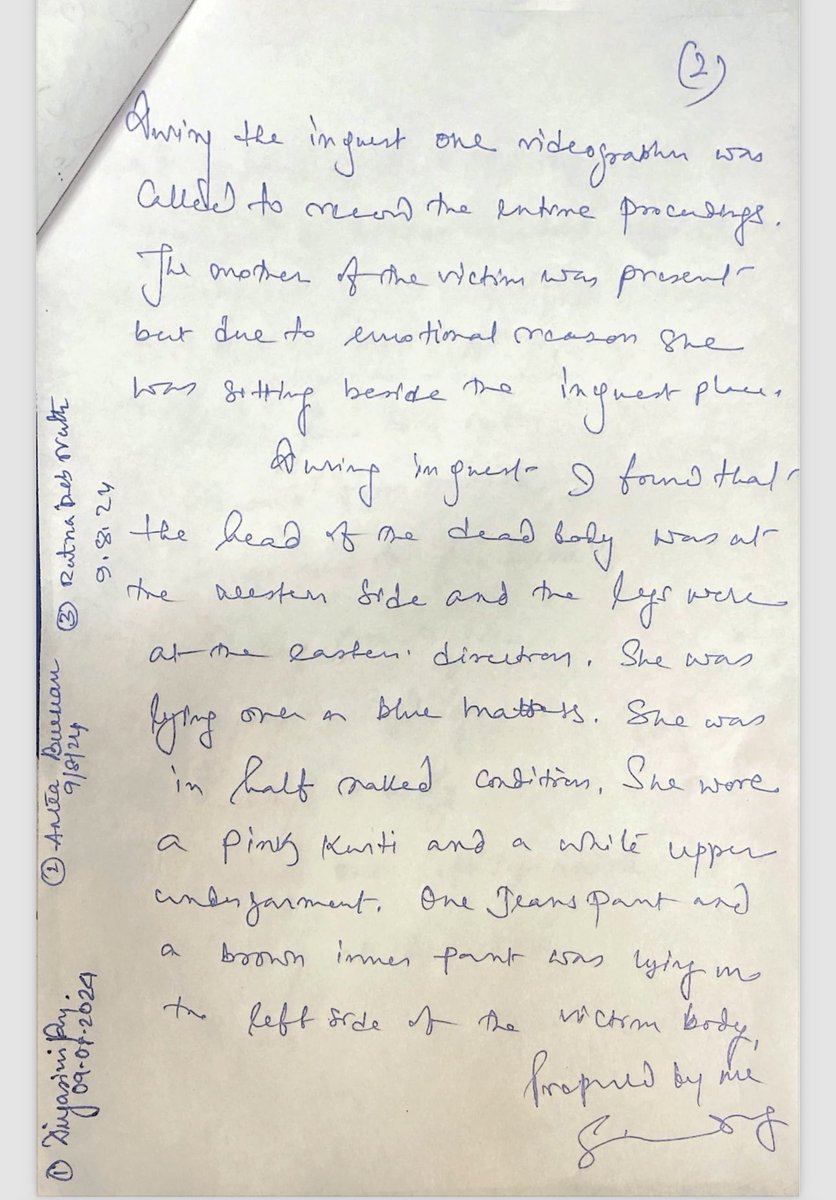 (2)
During the inquest one videographer was
Called to record the entire proceedings.
The mother of the victim was present
but due to emotional reason she
was sitting beside the inquest place.
During inquest I found that
the head of the dead body was at
the western side and the legs were
at the eastern direction. She was
lying over a blue mattress. She was
in half naked condition. She wore
a pink Kurti and a white upper
undergarment. One Jeans pant and
a brown inner pant was lying in
the left side of the victim body,
Prepared by me
①
09-08-2024
②
9/8/24
③ Ratna Deb Nath
9.8.24